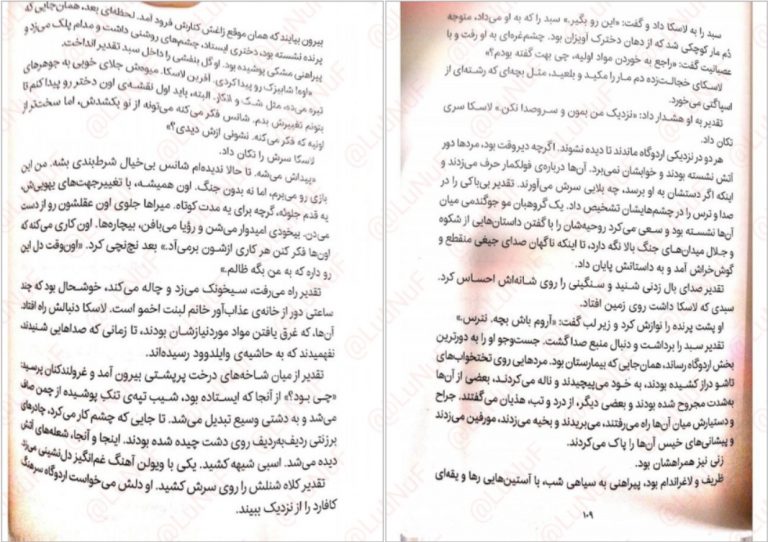 بیرون بیایند که همان موقع زاغش کنارش فرود آمد. لحظه‌ای بعد، همان‌جایی که
پرنده نشسته بود، دختری ایستاد، چشم‌های روشنی داشت و مدام پلک می‌زد و
پیراهنی مشکی پوشیده بود. او گل بنفشی را داخل سبد تقدیر انداخت.
«اوه! شابیزک رو پیدا کردی. آفرین لاسکا. میوه‌ش جلای خوبی به جوهرهای
تیره می‌ده، مثل شک و انکار. البته، باید اول نقشه‌ی اون دختر رو پیدا کنم تا
بتونم تغییرش بدم. شانس فکر می‌کنه می‌تونه از نو بکشدش، اما سخت‌تر از
اونیه که فکر می‌کنه. نشونی ازش دیدی؟»
لاسکا سرش را تکان داد.
«پیداش می‌شه. تا حالا ندیده‌ام شانس بی‌خیال شرط‌بندی بشه. من این
بازی رو می‌برم، اما نه بدون جنگ. اون همیشه، با تغییرجهت‌های یهویی‌ش،
یه قدم جلوئه، گرچه برای یه مدت کوتاه. میراها جلوی اون عقلشون رو از دست
می‌دن. بیخودی امیدوار می‌شن و رؤیا می‌بافن، بیچاره‌ها. اون کاری می‌کنه که
اون‌ها فکر کنن هر کاری ازشون برمی‌آد.» بعد نچ‌نچی کرد. «اون‌وقت دل این
رو داره که به من بگه ظالم.»
تقدیر راه می‌رفت، سیخونک می‌زد و چاله می‌کند، خوشحال بود که چند
ساعتی دور از خانه‌ی عذاب‌آور خانم لبنت اخمو است. لاسکا دنبالش راه افتاد.
آن‌ها، که غرق یافتن مواد موردنیازشان بودند، تا زمانی که صداهایی شنیدند،
نفهمیدند که به حاشیه‌ی وایلدوود رسیده‌اند.
تقدیر از میان شاخه‌های درخت پرپشتی بیرون آمد و غرولندکنان پرسید:
«چی بود؟» از آنجا که ایستاده بود، شیب تپه‌ی تنکِ پوشیده از چمن صاف
می‌شد و به دشتی وسیع تبدیل می‌شد. تا جایی که چشم کار می‌کرد، چادرهای
برزنتی ردیف‌به‌ردیف روی دشت چیده شده بودند. اینجا و آنجا، شعله‌های آتش
دیده می‌شد. اسبی شیهه کشید. یکی با ویولن آهنگ غم‌انگیز دل‌نشینی می‌زد.
تقدیر کلاه شنلش را روی سرش کشید. او دلش می‌خواست اردوگاه سرهنگ
کافارد را از نزدیک ببیند.
سبد را به لاسکا داد و گفت: «این رو بگیر.» سبد را که به او می‌داد، متوجه
دُم مار کوچکی شد که از دهان دخترک آویزان بود. چشم‌غره‌ای به او رفت و با
عصبانیت گفت: «راجع به خوردن مواد اولیه، چی بهت گفته بودم؟»
لاسکای خجالت‌زده دم مار را مکید و بلعید، مثل بچه‌ای که رشته‌ای از
اسپاگتی می‌خورد.
تقدیر به او هشدار داد: «نزدیک من بمون و سروصدا نکن.» لاسکا سری
تکان داد.
هر دو در نزدیکی اردوگاه ماندند تا دیده نشوند. اگرچه دیروقت بود، مردها دور
آتش نشسته بودند و خوابشان نمی‌برد. آن‌ها درباره‌ی فولکمار حرف می‌زدند و
اینکه اگر دستشان به او برسد، چه بلایی سرش می‌آورند. تقدیر بی‌باکی را در
صدا و ترس را در چشم‌هایشان تشخیص داد. یک گروهبان مو جوگندمی میان
آن‌ها نشسته بود و سعی می‌کرد روحیه‌شان را با گفتن داستان‌هایی از شکوه
و جلال میدان‌های جنگ بالا نگه دارد، تا اینکه ناگهان صدای جیغی منقطع و
گوش‌خراش آمد و به داستانش پایان داد.
تقدیر صدای بال زدنی شنید و سنگینی را روی شانه‌اش احساس کرد.
سبدی که لاسکا داشت روی زمین افتاد.
او پشت پرنده را نوازش کرد و زیر لب گفت: «آروم باش بچه. نترس.»
تقدیر سبد را برداشت و دنبال منبع صدا گشت. جست‌وجو او را به دورترین
بخش اردوگاه رساند، همان‌جایی که بیمارستان بود. مردهایی روی تختخواب‌های
تاشو دراز کشیده بودند، به خود می‌پیچیدند و ناله می‌کردند، بعضی از آن‌ها
به‌شدت مجروح شده بودند و بعضی دیگر، از درد و تب، هذیان می‌گفتند. جراح
و دستیارش میان آن‌ها راه می‌رفتند، می‌بریدند و بخیه می‌زدند، مورفین می‌زدند
و پیشانی‌های خیس آن‌ها را پاک می‌کردند.
زنی نیز همراهشان بود.
ظریف و لاغراندام بود، پیراهنی به سیاهی شب، با آستین‌هایی رها و یقه‌ای
۱۰۹
@LuNuF